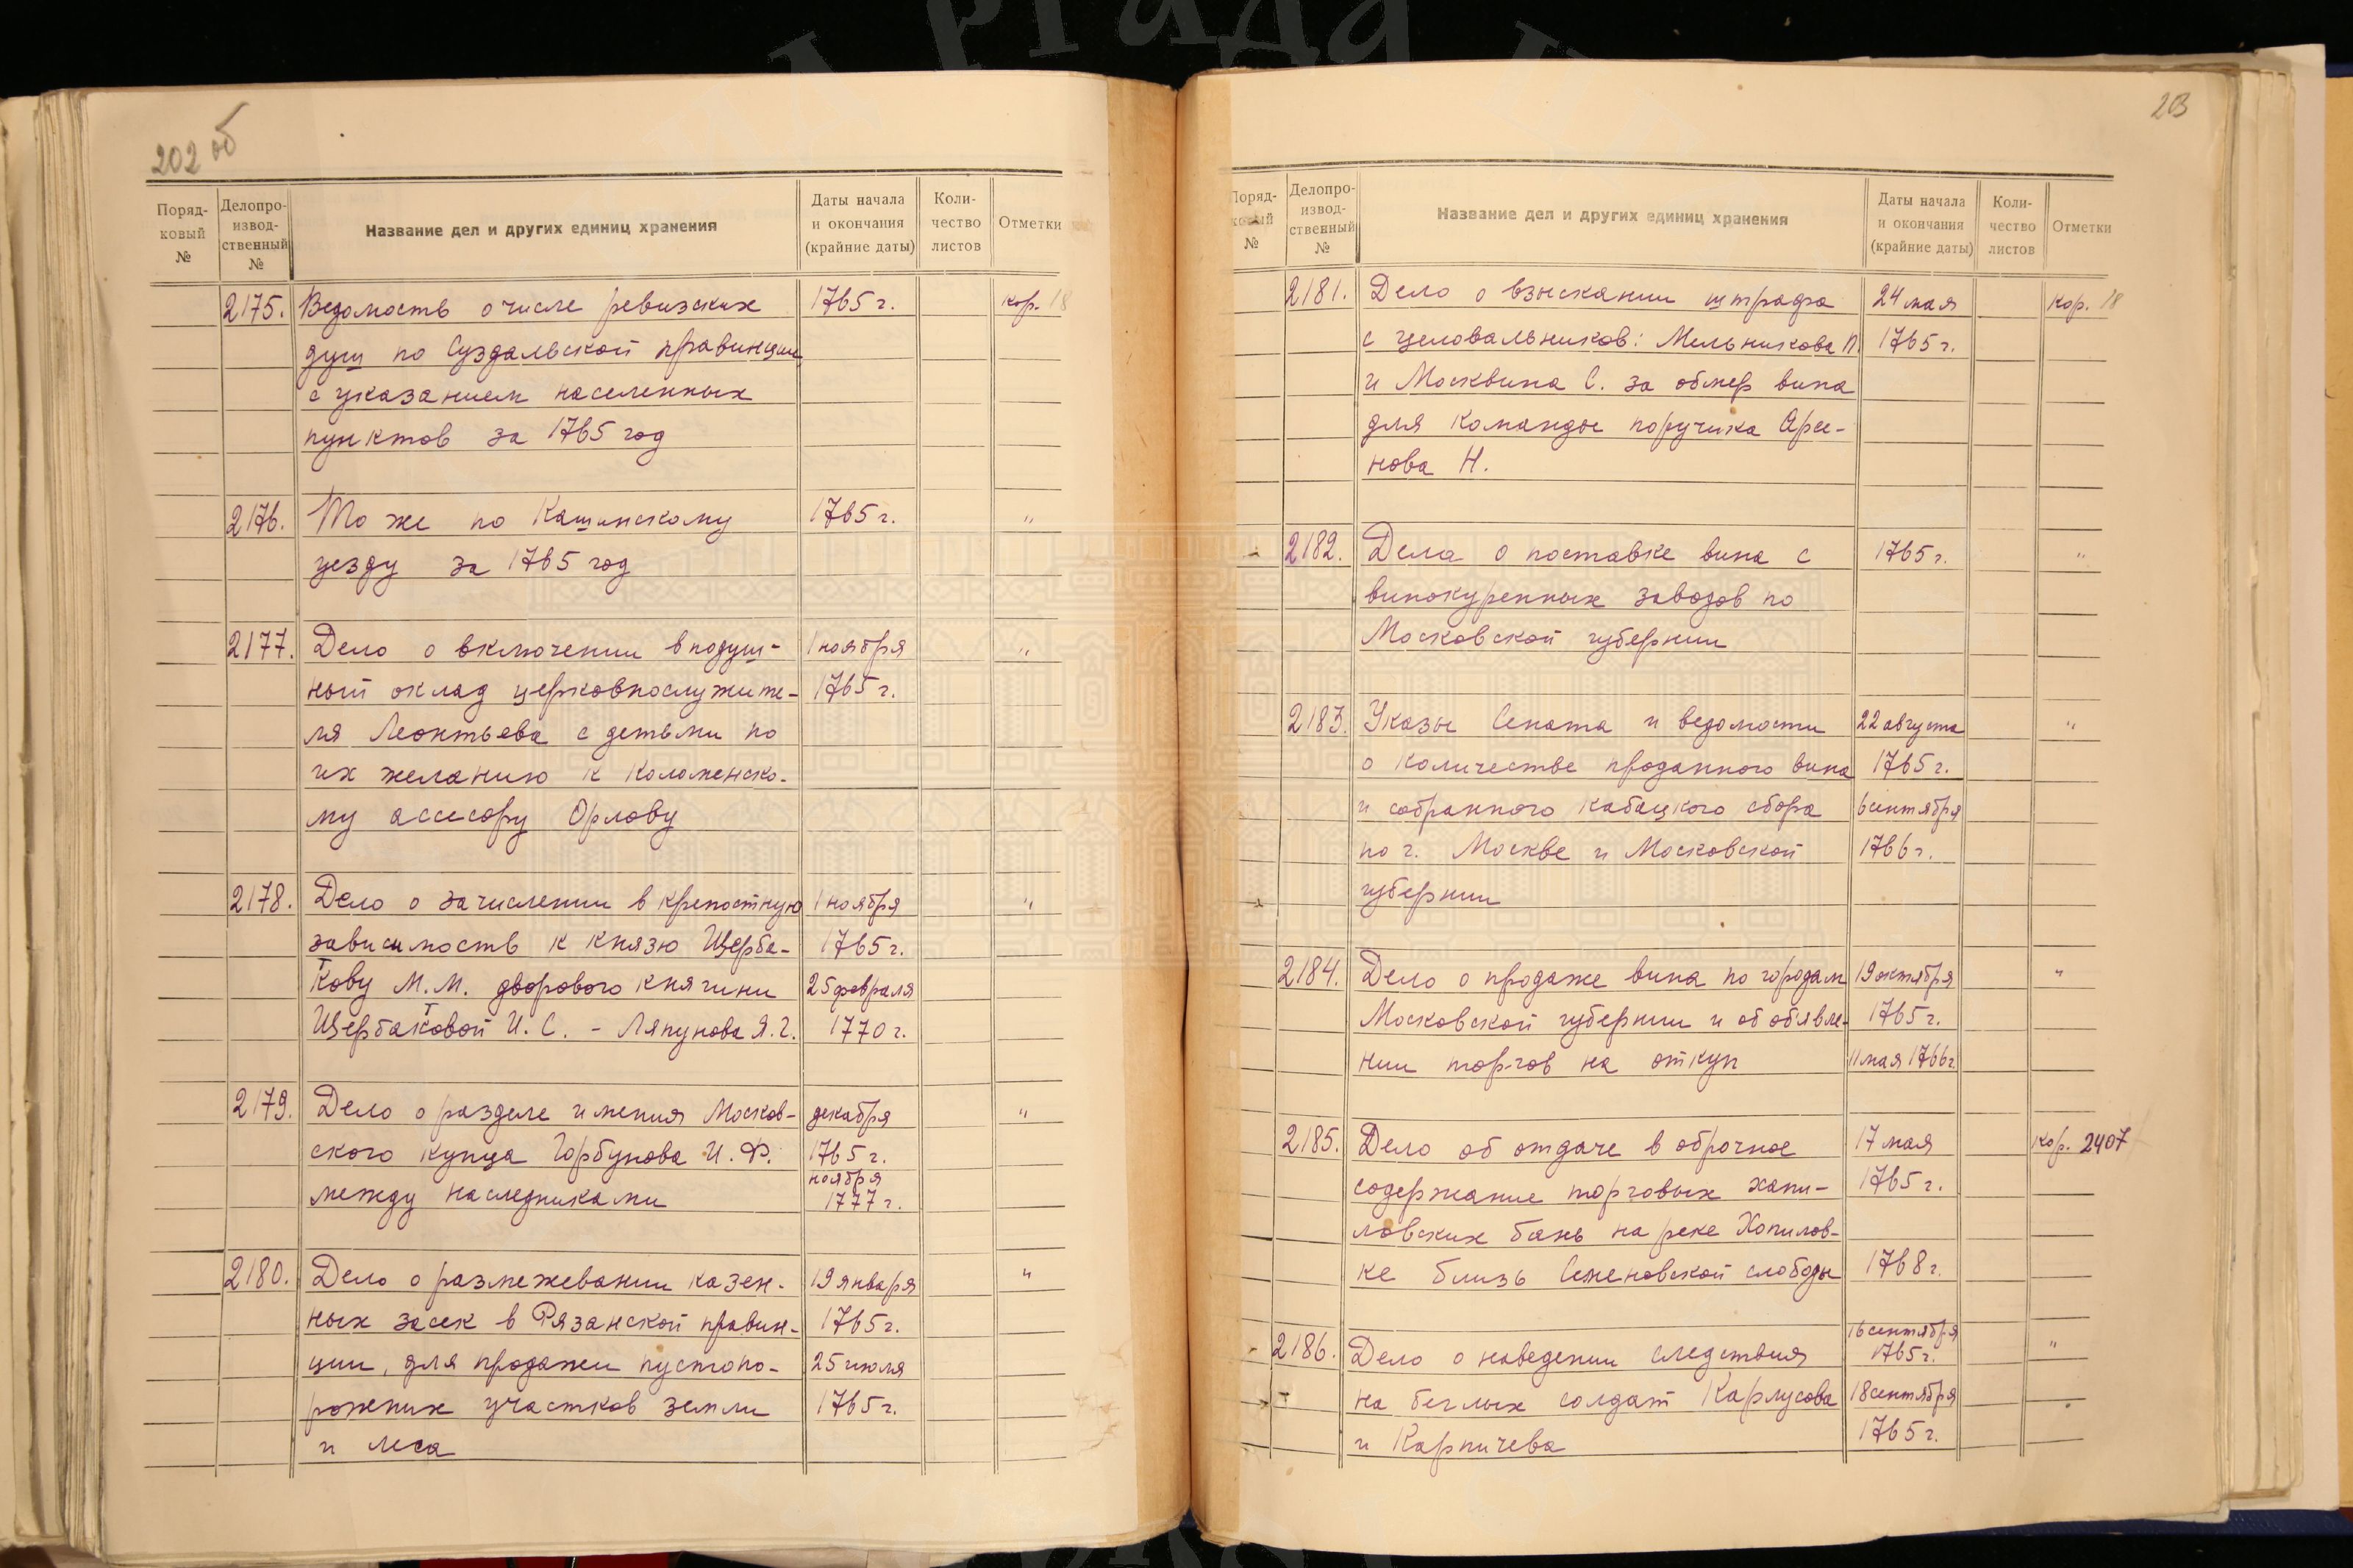 202 об
Поряд-
ковый
№
Делопро-
извод-
ственный
№
Название дел и других единиц хранения
Даты начала
и окончания
(крайние даты)
Коли-
чество
листов
Отметки
2175. Ведомость о числе ревизских 1765 г. кор. 18
душ по Суздальской правинции
с указанием населенных
пунктов за 1765 год
2176. То же по Кашинскому 1765 г. "
уезду за 1765 год
2177. Дело о включении в подуш- 1 ноября "
ный оклад церковнослужите- 1765 г.
ля Леонтьева с детьми по
их желанию к коломенско-
му ассесору Орлову
2178. Дело о зачислении в крепостную 1 ноября "
зависимость к князю Щерба- 1765 г.
тову М.М. дворового княгини 25 февраля
Щербатовой И.С. - Ляпунова Я.Г. 1770 г.
2179. Дело о разделе имения Москов- декабря "
ского купца Горбунова И.Ф. 1765 г.
ноября
между наследниками 1777 г.
2180. Дело о размежевании казен- 19 января "
ных засек в Рязанской правин- 1765 г.
ции, для продажи пустопо- 25 июля
рожних участков земли 1765 г.
и леса
203
Поряд-
ковый
№
Делопро-
извод-
ственный
№
Название дел и других единиц хранения
Даты начала
и окончания
(крайние даты)
Коли-
чество
листов
Отметки
2181. Дело о взыскании штрафа 24 мая кор. 18
с целовальников: Мельникова П. 1765 г.
и Москвина С. за обмер вина
для команды поручика Арсе-
нова Н.
2182. Дела о поставке вина с 1765 г. "
винокуренных заводов по
Московской губернии
2183. Указы Сената и ведомости 22 августа "
о количестве проданного вина 1765 г.
и собранного кабацкого сбора 6 сентября
по г. Москве и Московской 1766 г.
губернии
2184. Дело о продаже вина по городам 19 октября "
Московской губернии и об обявле- 1765 г.
нии торгов на откуп 11 мая 1766 г.
2185. Дело об отдаче в оброчное 17 мая кор. 2407
содержание торговых хапи- 1765 г.
ловских бань на реке Хопилов-
ке близь Семеновской слободы 1768 г.
16 сентября
2186. Дело о наведении следствия 1765 г. "
на беглых солдат Карлусова 18 сентября
и Карпичева 1765 г.